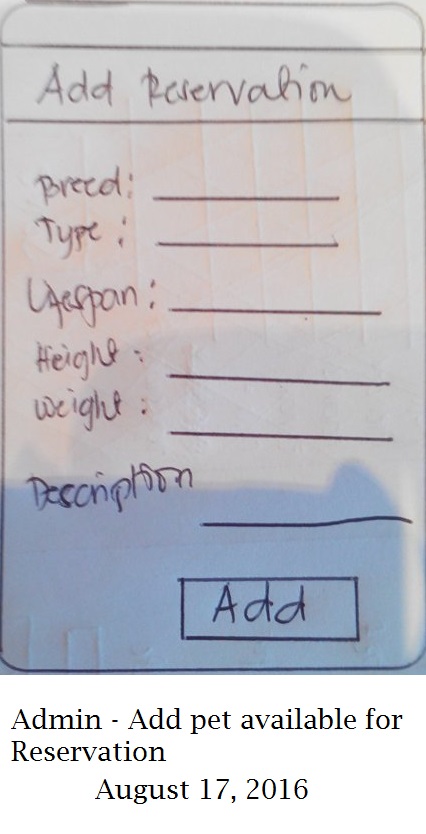 Add Reservation
Breed:
Type:
Lifespan:
Height:
Weight:
Description
Add
Admin - Add pet available for
Reservation
August 17, 2016